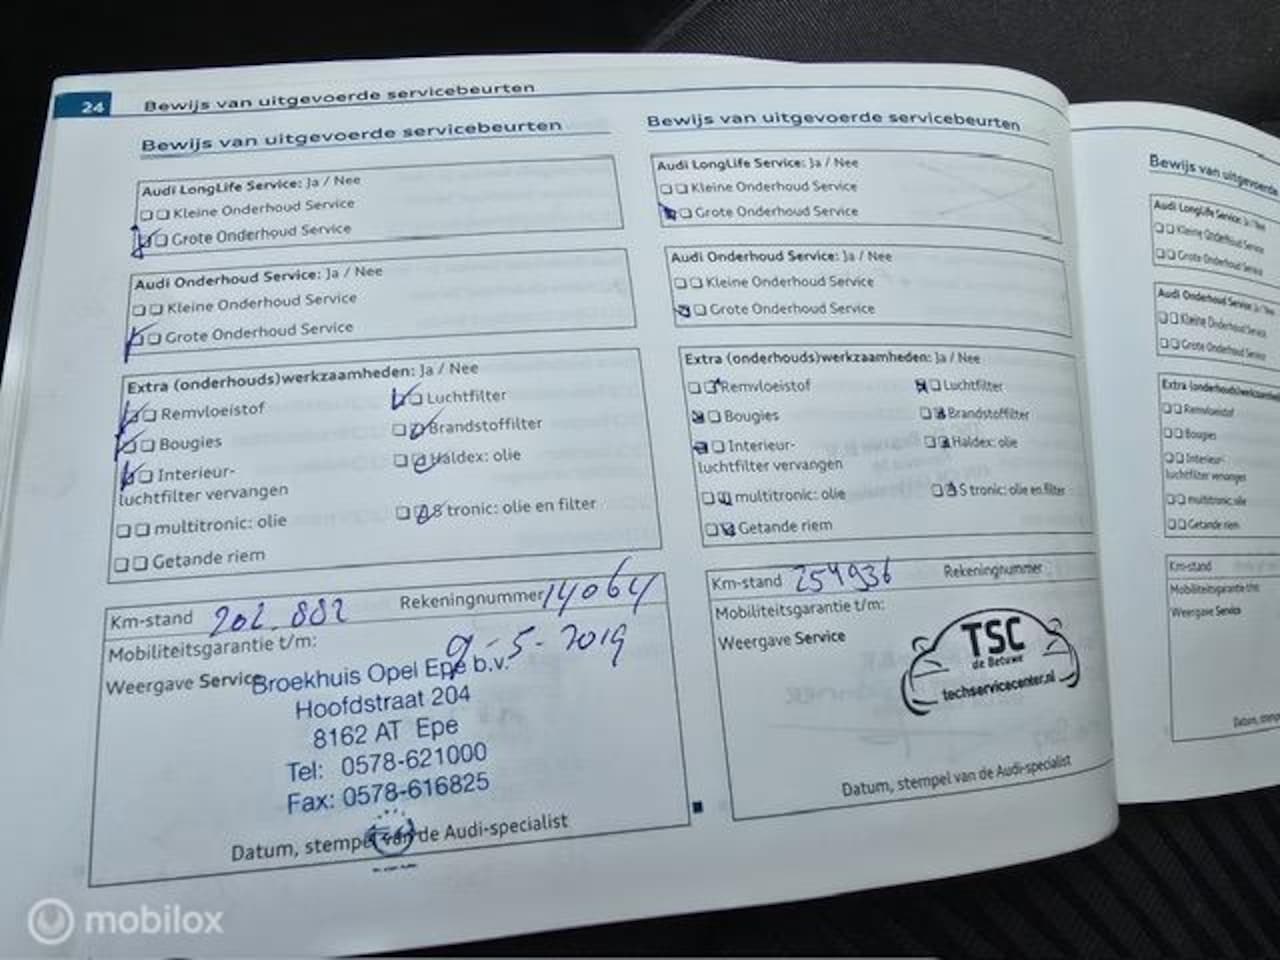 24 Bewijs van uitgevoerde servicebeurten
Bewijs van uitgevoerde servicebeurten
Audi LongLife Service: Ja / Nee
Kleine Onderhoud Service
Grote Onderhoud Service
Audi Onderhoud Service: Ja / Nee
Kleine Onderhoud Service
Grote Onderhoud Service
Extra (onderhouds)werkzaamheden: Ja / Nee
Remvloeistof Luchtfilter
Bougies Brandstoffilter
Interieur- Haldex: olie
luchtfilter vervangen
multitronic: olie S tronic: olie en filter
Getande riem
Km-stand 202.882 Rekeningnummer 14064
Mobiliteitsgarantie t/m: 9-5-2019
Weergave Service
Broekhuis Opel Epe b.v.
Hoofdstraat 204
8162 AT Epe
Tel: 0578-621000
Fax: 0578-616825
Datum, stempel van de Audi-specialist
Bewijs van uitgevoerde servicebeurten
Audi LongLife Service: Ja / Nee
Kleine Onderhoud Service
Grote Onderhoud Service
Audi Onderhoud Service: Ja / Nee
Kleine Onderhoud Service
Grote Onderhoud Service
Extra (onderhouds)werkzaamheden: Ja / Nee
Remvloeistof Luchtfilter
Bougies Brandstoffilter
Interieur- Haldex: olie
luchtfilter vervangen
multitronic: olie S tronic: olie en filter
Getande riem
Km-stand 254936 Rekeningnummer
Mobiliteitsgarantie t/m:
Weergave Service
TSC
de Betuwe
techservicecenter.nl
Datum, stempel van de Audi-specialist
Bewijs van uitgevoerde
Audi LongLife Service: Ja / Nee
Kleine Onderhoud Service
Grote Onderhoud Service
Audi Onderhoud Service: Ja / Nee
Kleine Onderhoud Service
Grote Onderhoud Service
Extra (onderhouds)werkzaamheden
Remvloeistof
Bougies
Interieur-
luchtfilter vervangen
multitronic: olie
Getande riem
Km-stand
Mobiliteitsgarantie t/m:
Weergave Service
Datum,
mobilox